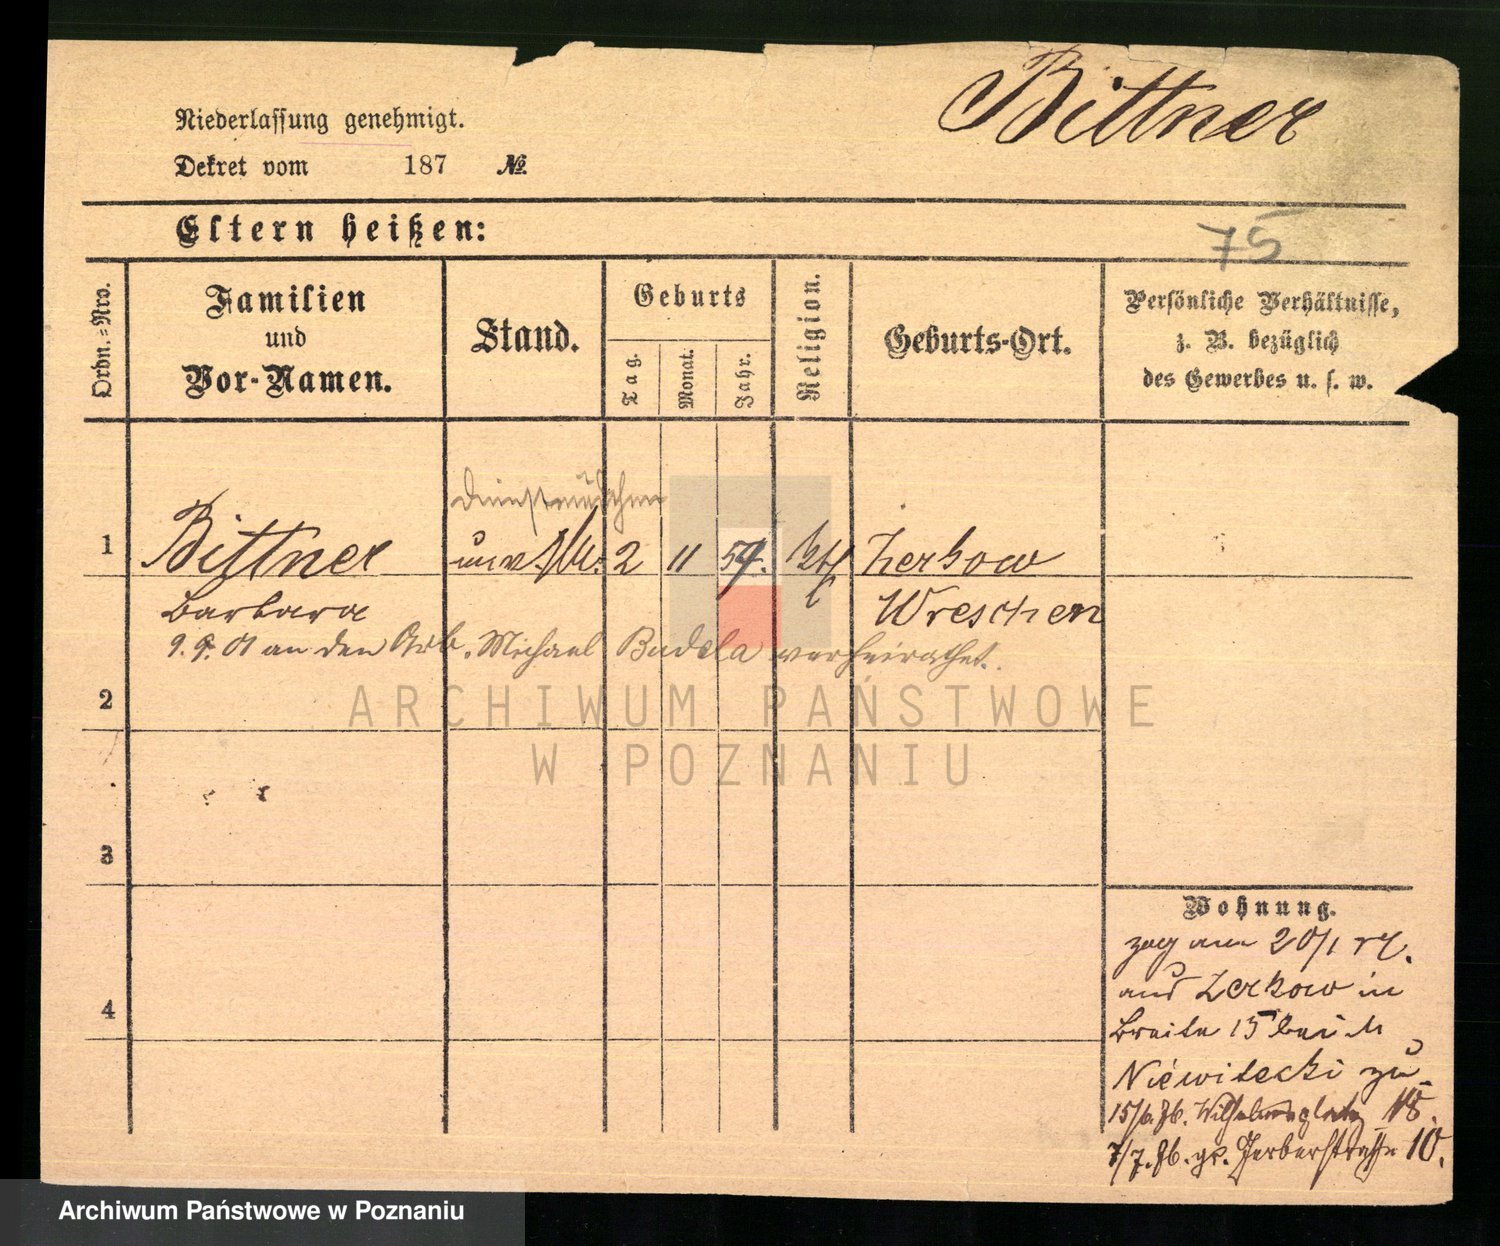 Bittner
Niederlassung genehmigt.
Dekret vom 187 №
Eltern heißen:
75
Ordn.-Nro.
Familien
und
Vor-Namen.
Stand.
Geburts
Tag.
Monat.
Jahr.
Religion.
Geburts-Ort.
Persönliche Verhältnisse,
z. B. bezüglich
des Gewerbes u. s. w.
Dienstmädchen
1 Bittner unv. 2 11 Zerkow
Barbara Wreschen
9. 9. 01 an den Arb. Michael Budela verheirathet.
2
3
4
Wohnung.
zog am 20/1
aus Zerkow in
Breite 15 bei
Niewitecki zu
15/6. 86. Wilhelmsplatz 18.
7/7. 86. gr. Gerberstraße 10.
ARCHIWUM PAŃSTWOWE
W POZNANIU
Archiwum Państwowe w Poznaniu